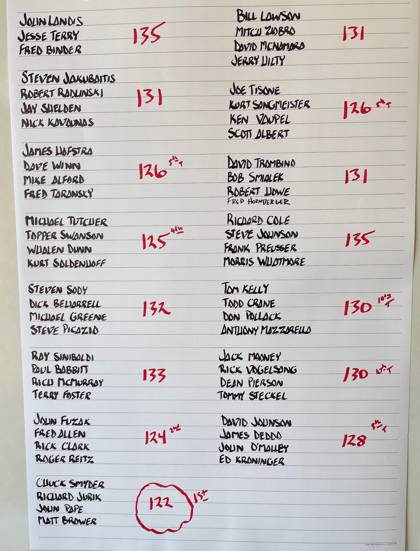 John Landis
Jesse Terry
Fred Binder
135
Steven Jakubaitis
Robert Radlinski
Jay Shelden
Nick Kovounas
131
James Hofstra
Dave Winn
Mike Alford
Fred Taransky
126 5th T
Michael Tutcher
Topper Swanson
Whalen Dunn
Kurt Soldenhoff
125 4th
Steven Sody
Dick Bellarrell
Michael Greene
Steve Picazio
132
Ray Sinibaldi
Paul Babbitt
Rich McMurray
Terry Foster
133
John Fuzak
Fred Allen
Rick Clark
Roger Reitz
124 2nd
Chuck Smyder
Richard Jurik
John Pape
Matt Brower
122 1st
Bill Lawson
Mitch Ziobro
David McNamara
Jerry Hilty
131
Joe Tisone
Kurt Songmeister
Ken Vaupel
Scott Albert
126 5th T
David Trombino
Bob Smialek
Robert Howe
Fred Hornberger
131
Richard Cole
Steve Johnson
Frank Preusser
Morris Whitmore
135
Tom Kelly
Todd Crane
Don Pollack
Anthony Mazzarello
130 10th T
Jack Mooney
Rick Vogelsong
Dean Pierson
Tommy Steckel
130
David Johnson
James Deddo
John O'Malley
Ed Kroninger
128